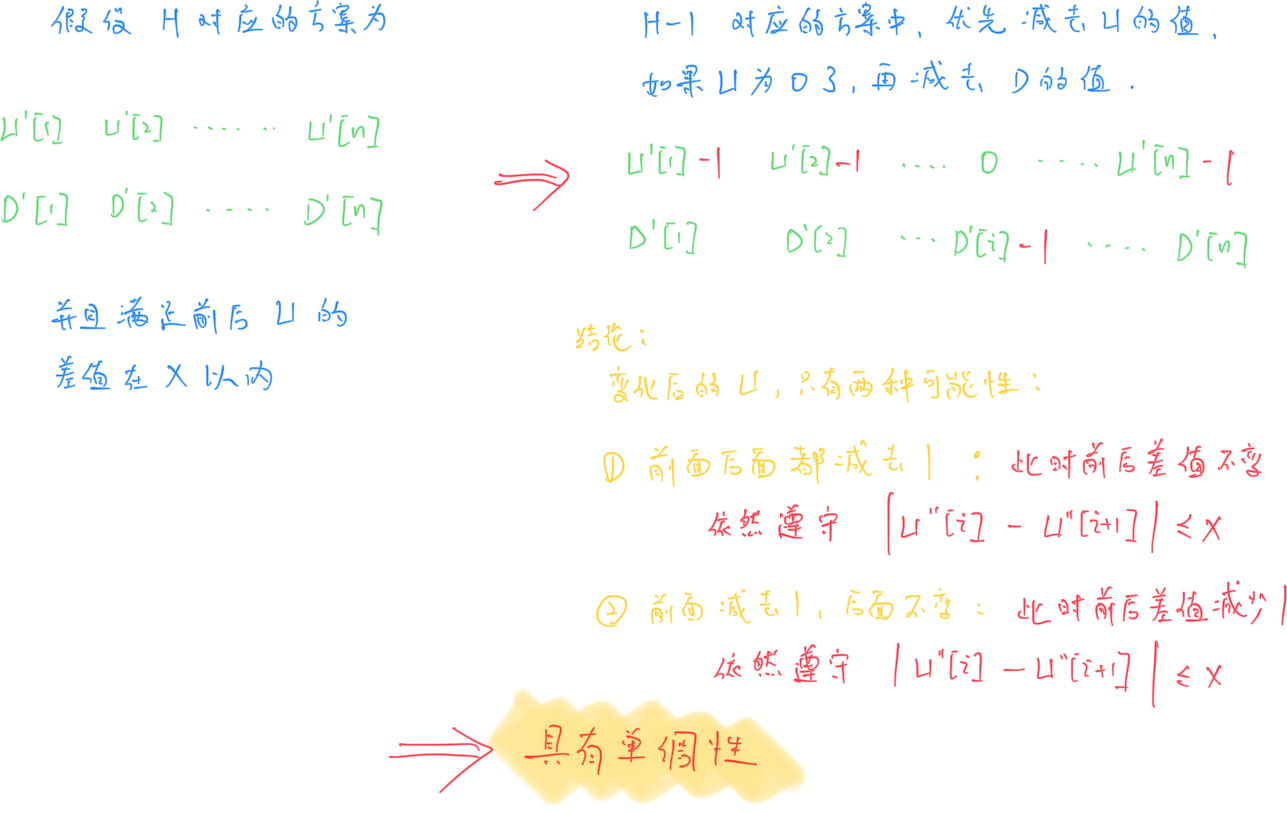 假设 H 对应的方案为
U'[1] U'[2] ...... U'[n]
D'[1] D'[2] ..... D'[n]
并且满足前后 U 的
差值在 X 以内
⇒
H-1 对应的方案中，优先减去 U 的值，
如果 U 为 0 了，再减去 D 的值．
U'[1]-1 U'[2]-1 .... 0 ..... U'[n]-1
D'[1] D'[2] ... D'[i]-1 ..... D'[n]
结论：
变化后的 U，只有两种可能性：
① 前面后面都减去 1 ：此时前后差值不变
依然遵守 |U''[i] - U''[i+1]| ≤ X
② 前面减去 1，后面不变：此时前后差值减少 1
依然遵守 |U''[i] - U''[i+1]| ≤ X
⇒ 具有单调性